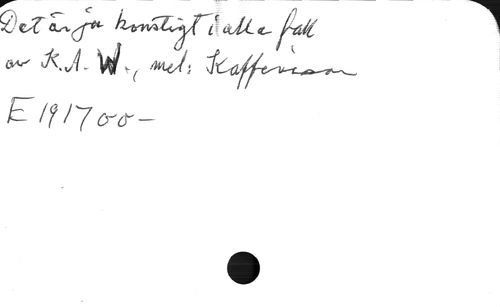 Det är ja konstigt i alla fall
av K.A. W., mel: Kaffevisan
E 191700-